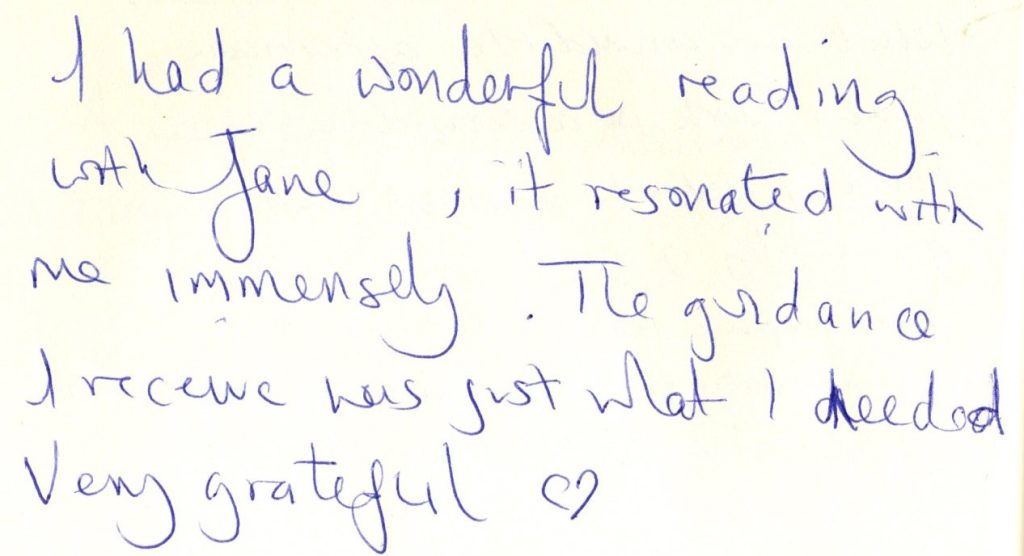 I had a wonderful reading
with Jane, it resonated with
me immensely. The guidance
I receive was just what I needed
Very grateful ♡